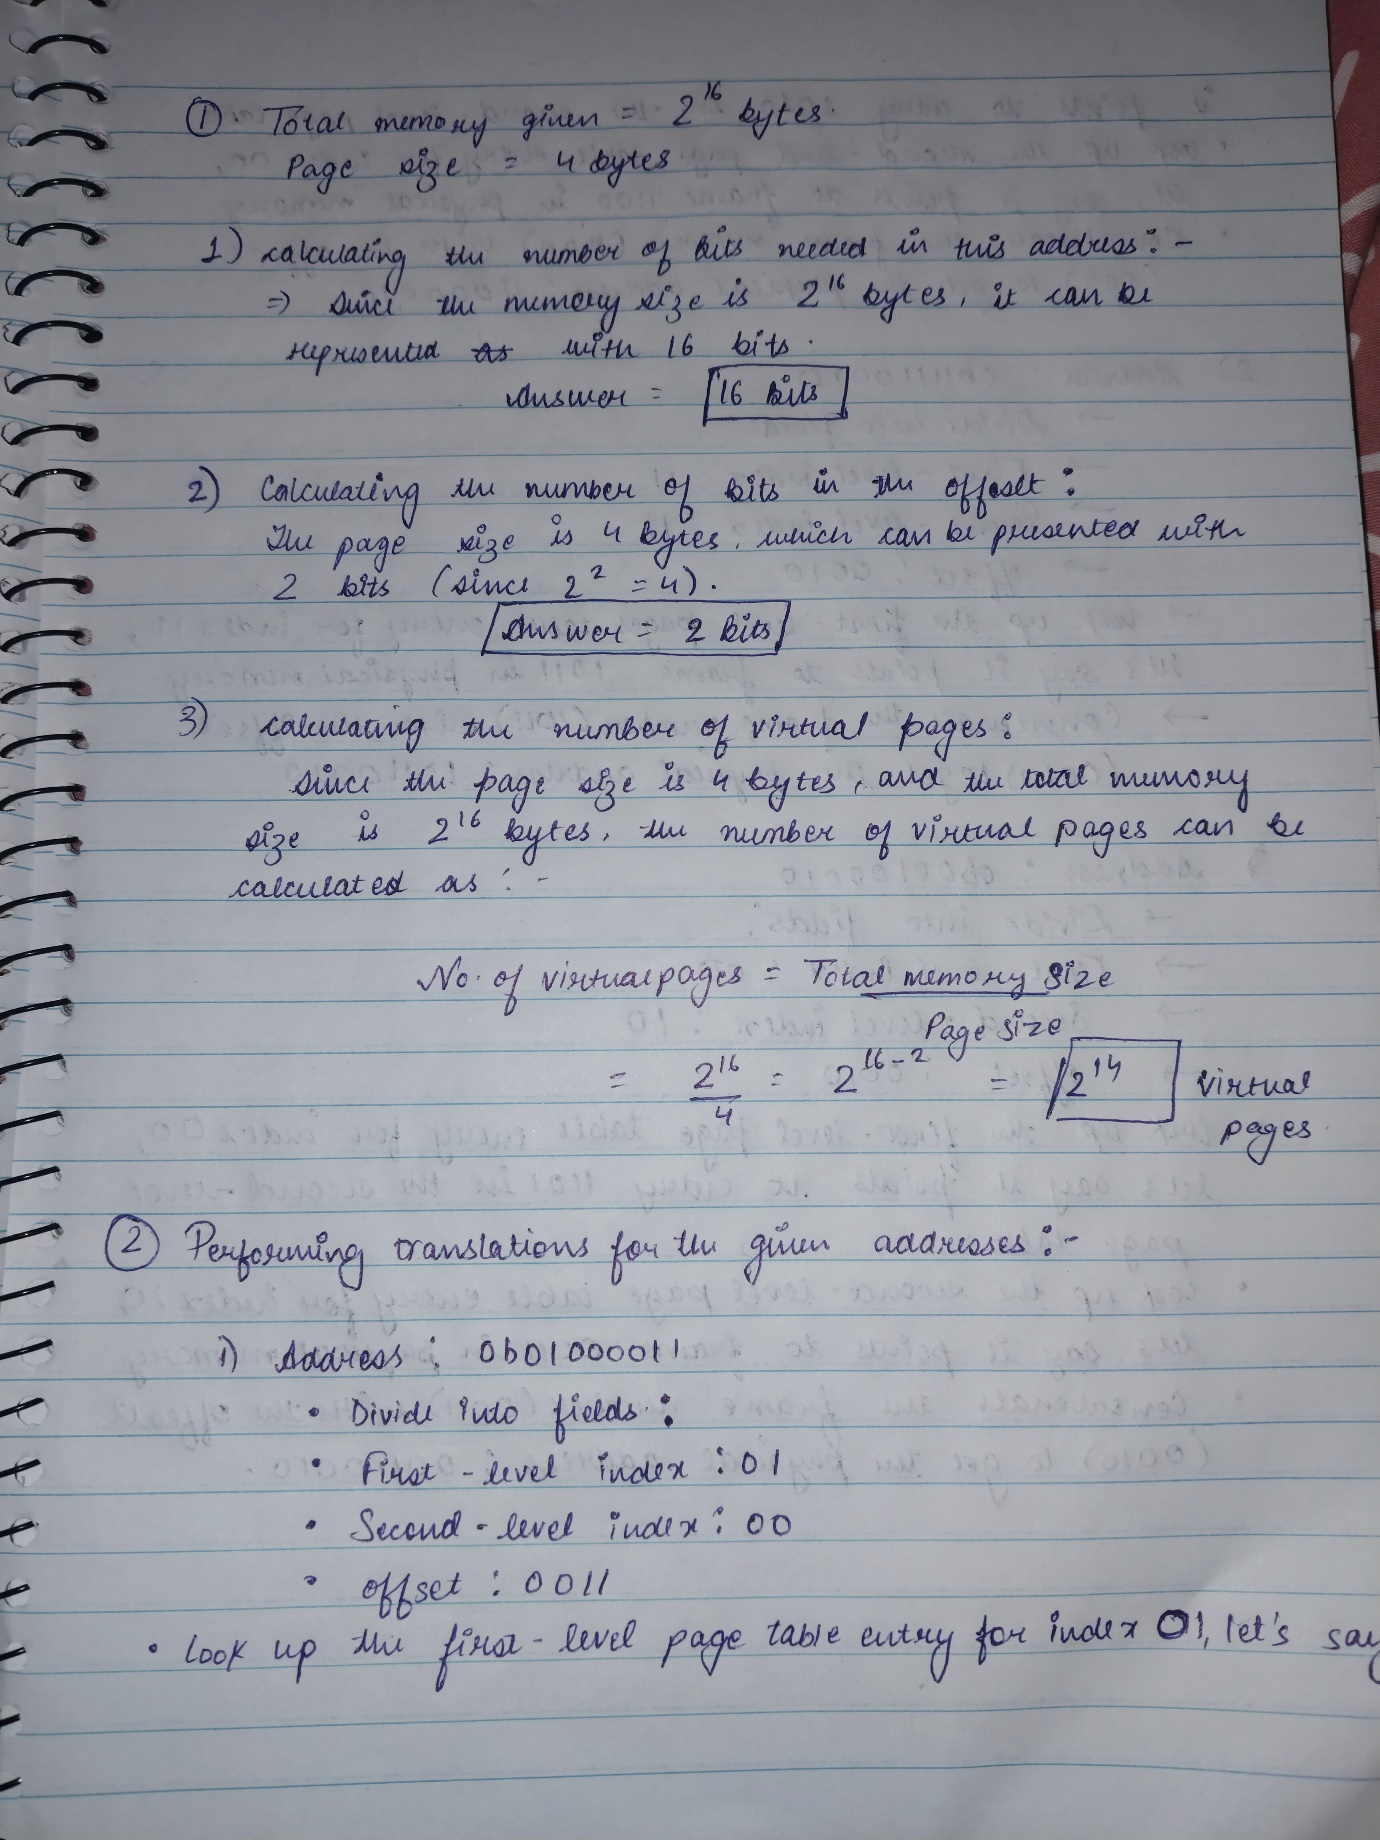 ① Total memory given = 2^16 bytes.
Page size = 4 bytes
1) calculating the number of bits needed in this address : -
⇒ Since the memory size is 2^16 bytes, it can be
represented as with 16 bits.
Answer = 16 bits
2) Calculating the number of bits in the offeslt :
The page size is 4 bytes, which can be presented with
2 bits (since 2^2 = 4).
Answer = 2 bits
3) calculating the number of virtual pages :
Since the page size is 4 bytes, and the total memory
size is 2^16 bytes, the number of virtual pages can be
calculated as : -
No. of virtual pages = Total memory size
Page size
= 2^16 / 4 = 2^16-2 = 2^14 virtual
pages
② Performing translations for the given addresses : -
1) Address : 0b01000011
• Divide into fields :
• First - level index : 01
• Second - level index : 00
• offset : 0011
• Look up the first - level page table entry for index 01, let's say